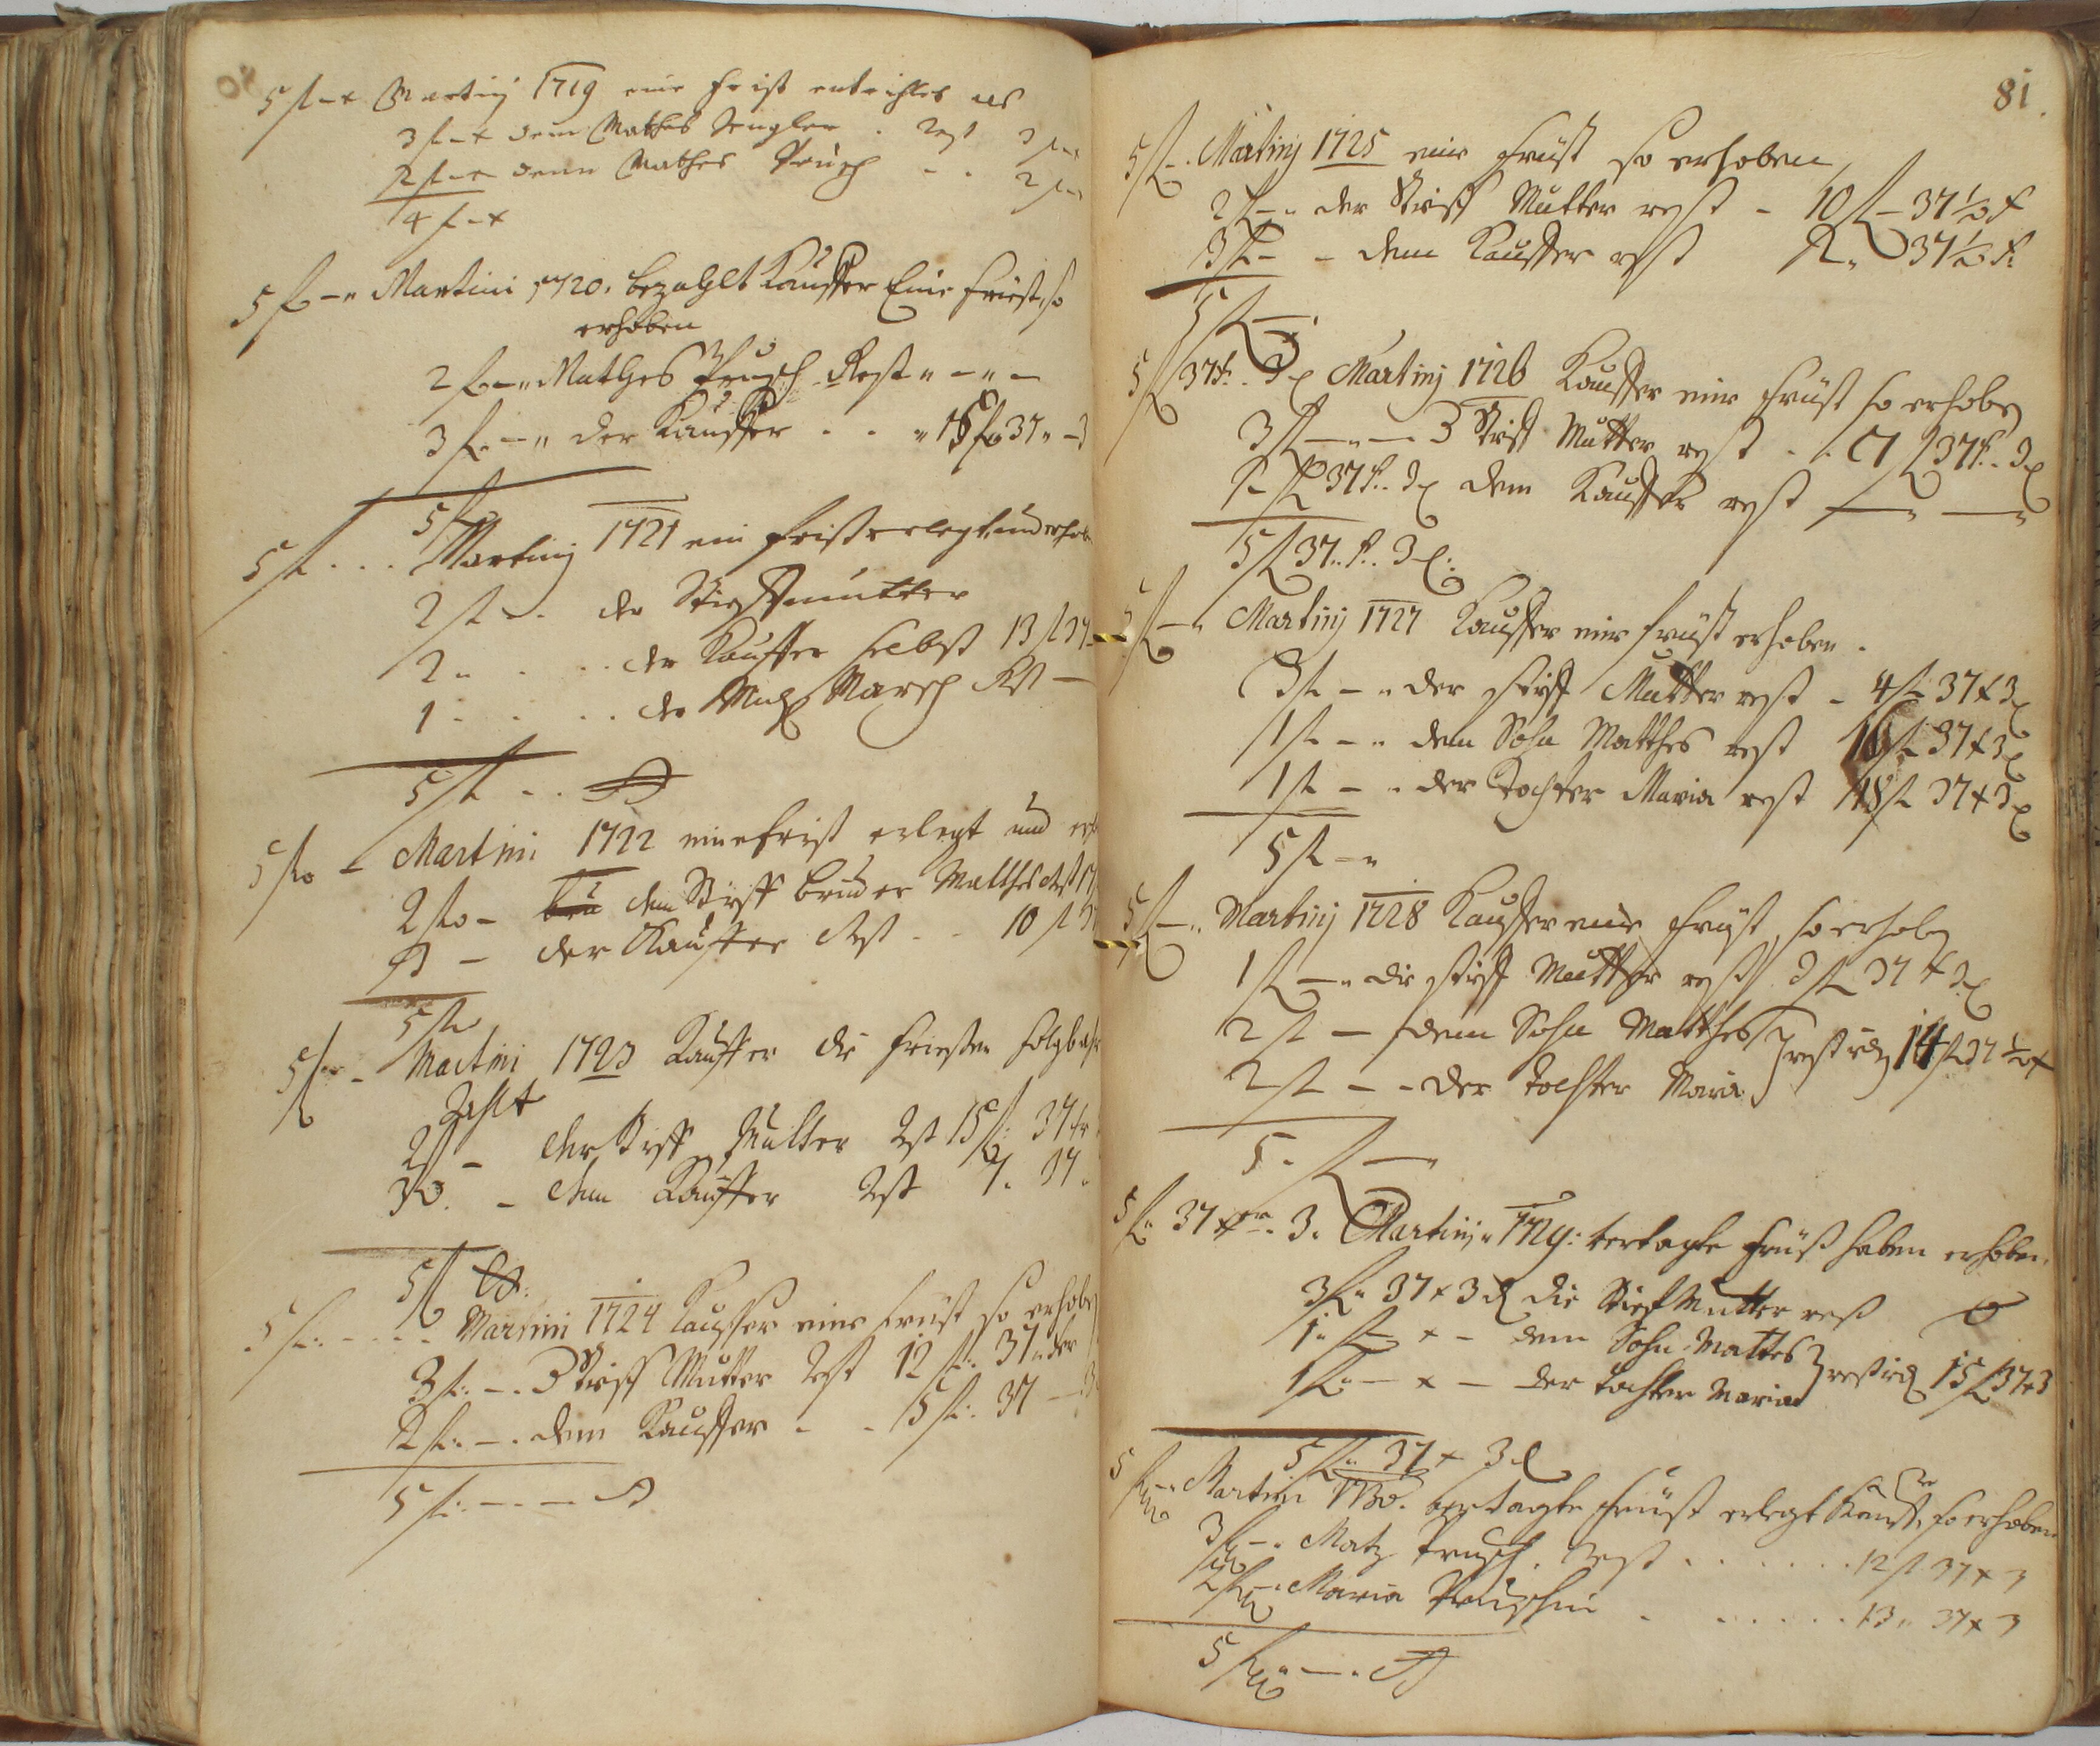 5 fl – x Martinj 1719 eine Frist entrichtet als
3 fl – x dem Mathes Rest 3 fl
fl – x denn Mathes Prusch – . 2 fl
4 fl – x
5 fl – " Martini 1720. bezahlt Kauffer Eine Friest, so
erhoben
2 fl – " Mathes Prusch Rest " – " –
3 fl. – " der Kauffer . . " 15 fl 37 " – 3
5 fl
5 fl . . . Martinj 1721 ein Frist erlegt und erhob
2 fl – . der Stieffmutter
2 " . . . der Kauffer selbst 13 fl 37
1 . . . . der Marsch Rst –
5 fl – . .
5 fl – Martini 1722 eine frist erlegt und
2 fl – dem Stieff bruder Matthes Rst 17
– der Kauffer Rst . . 10 fl 37
5 fl
5 fl – Martini 1723 Kauffer die friesten
Zahlt
2 fl – der Stieff Mutter Rst 15 fl: 37 kr
3 . – dem Kauffer Rst 7. 37 .
5 fl
5 fl: – . – . Martini 1724 Kauffer eine frist so erhoben
3 fl: – . Stieff Mutter Rest 12 fl: 37 " der
2 fl: – . dem Kauffer . . 5 fl: 37 – 3
5 fl: – . –
81.
5 fl – . Martinj 1725 eine Früst so erhoben
2 fl – " der Stieff Mutter rest – 10 fl – 37 ½ x
3 fl – – dem Kauffer rest 2 " 37 ½ x
5 fl – .
5 fl 37 x . 3 Martinj 1726 Kauffer eine Früst so erhoben
3 fl – " – . Stieff Mutter rest . . 7 fl 37 x . 3
2 fl 37 x . 3 dem Kauffer rest – " – "
5 fl 37 . x . 3 .
5 fl – " Martinj 1727 Kauffer eine früst erhoben .
3 fl – " der stieff Mutter rest – 4 fl 37 x 3
1 fl – " dem Sohn Matthes rest 16 fl 37 x 3
1 fl – " der Tochter Maria rest 18 fl 37 x 3
5 fl – "
5 fl – " Martinj 1728 Kauffer eine früst, so erhoben
1 fl – " die stieff Mutter rest 3 fl 37 x 3
2 fl – dem Sohn Matthes
2 fl – – der tochter Maria 14 fl 37 ½ x
5 . fl –
5 fl: 37 x . 3. Martinj " 1729: vertagte Früst haben erhoben.
3 fl " 37 x 3 d die Stieff Mutter rest
1 " fl – x – dem Sohn Mattes
1 fl " – x – der tochter Maria 15 fl 37 x 3
5 fl " 37 x 3 d
5 fl – " Martinj 1730. vertagte früst erlegt Kauffer, so erhoben
3 fl – " Matz Prusch . Rest . . . . . . 12 fl 37 x 3
2 fl – " Maria Pruschin . . . . . . 13 " 37 x 3
5 fl " – .